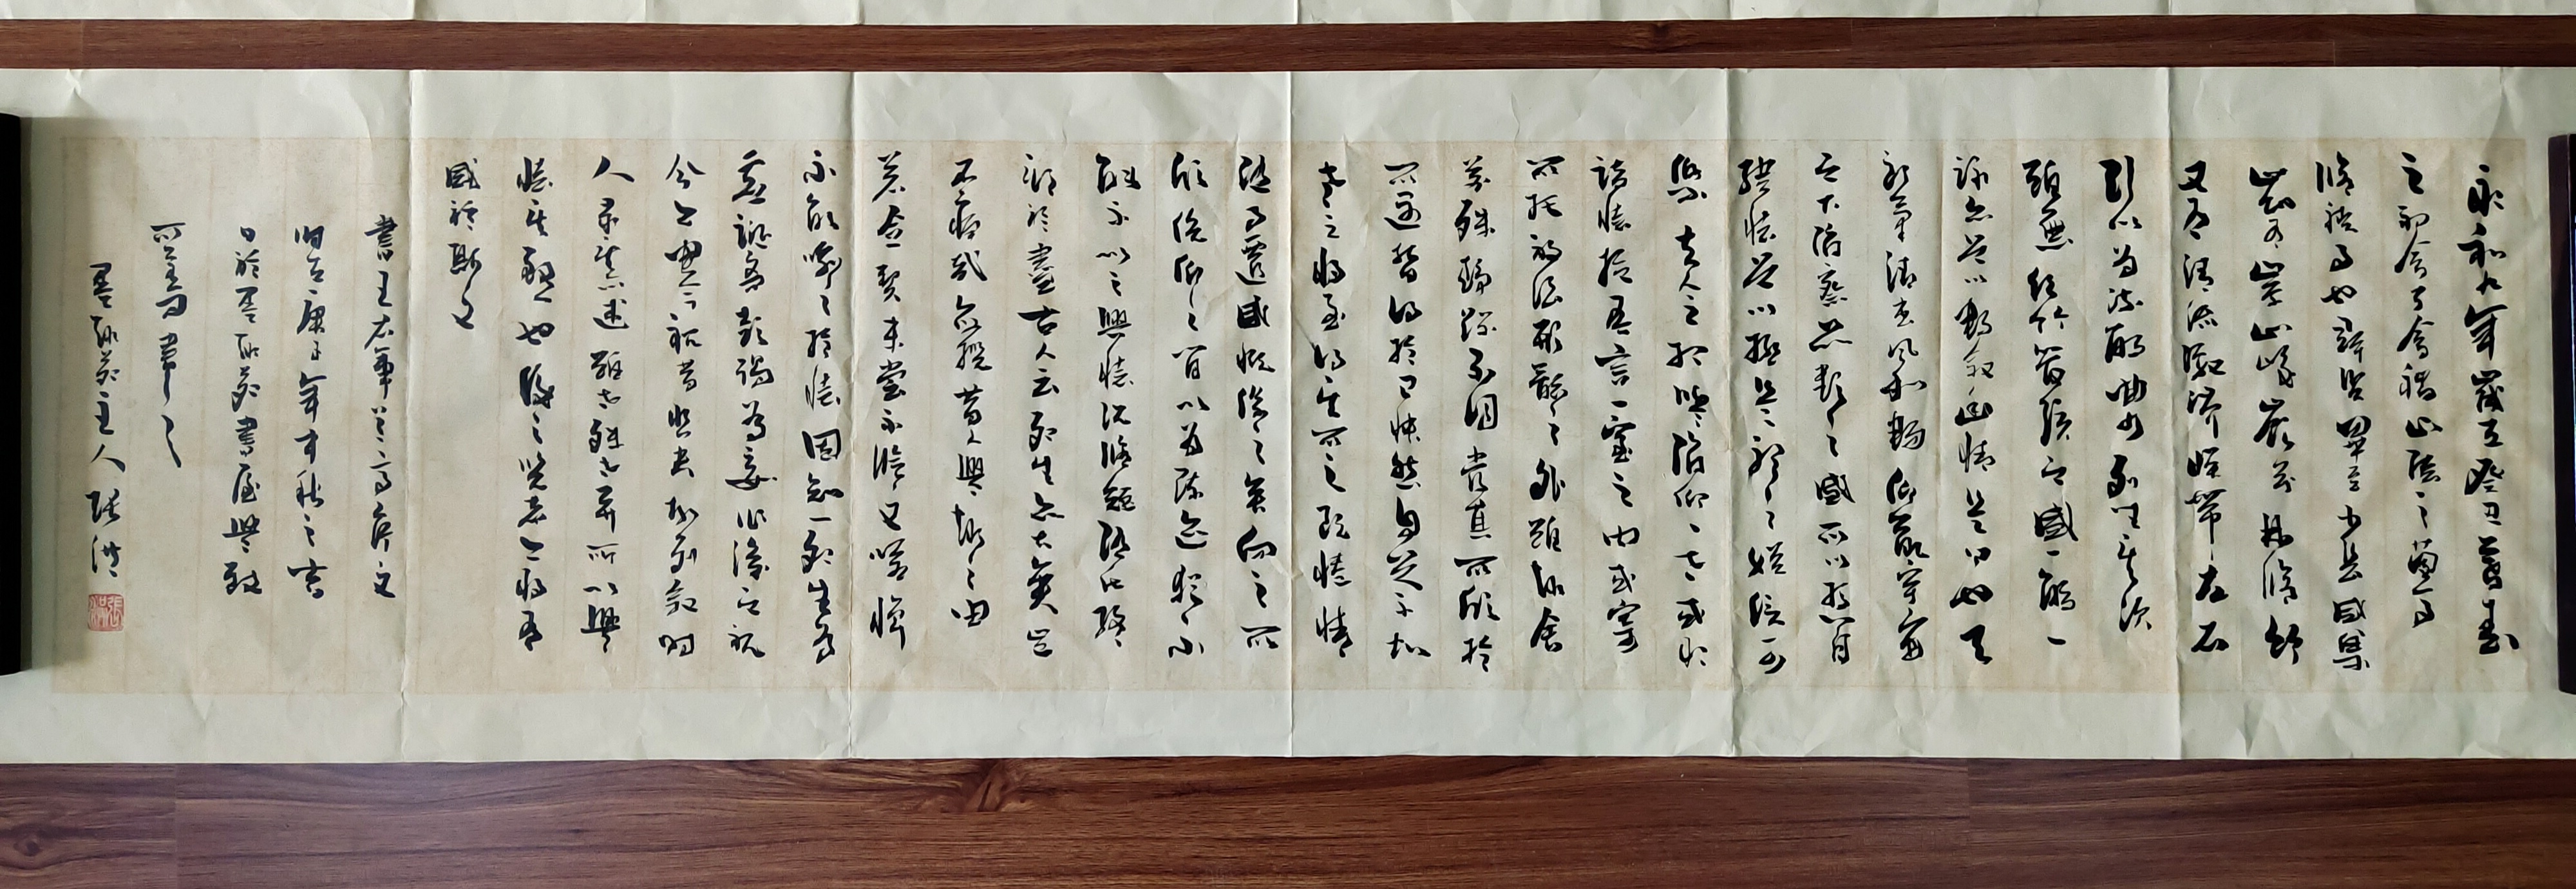 永和九年歲在癸丑暮春
之初會于會稽山陰之蘭亭
脩禊事也群賢畢至少長咸集
此地有崇山峻嶺茂林脩竹
又有清流激湍暎帶左右
引以為流觴曲水列坐其次
雖無絲竹管弦之盛一觴一
詠亦足以暢敘幽情是日也天
朗氣清惠風和暢仰觀宇宙
之大俯察品類之盛所以遊目
騁懷足以極視聽之娛信可
樂夫人之相與俯仰一世或取
諸懷抱悟言一室之内或寄
所託放浪形骸之外雖趣舍
萬殊靜躁不同當其欣於
所遇暫得於己快然自足不知
老之將至得其所之既惓情
隨事遷感慨係之矣向之所
欣俛仰之間以為陳迹猶不
能不以之興懷況脩短隨化終
期於盡古人云死生亦大矣豈
不痛哉每攬昔人興感之由
若合一契未嘗不臨文嗟悼
不能喻之於懷固知一死生為
虛誕齊彭殤為妄作後之視
今亦由今之視昔悲夫故列敘時
人錄其所述雖世殊事異所以興
懷其致一也後之覽者亦將有
感於斯文
書王右軍蘭亭序文
時在庚子年中秋之吉
日於墨苑書屋興致
所至耳草草
墨苑主人張洪